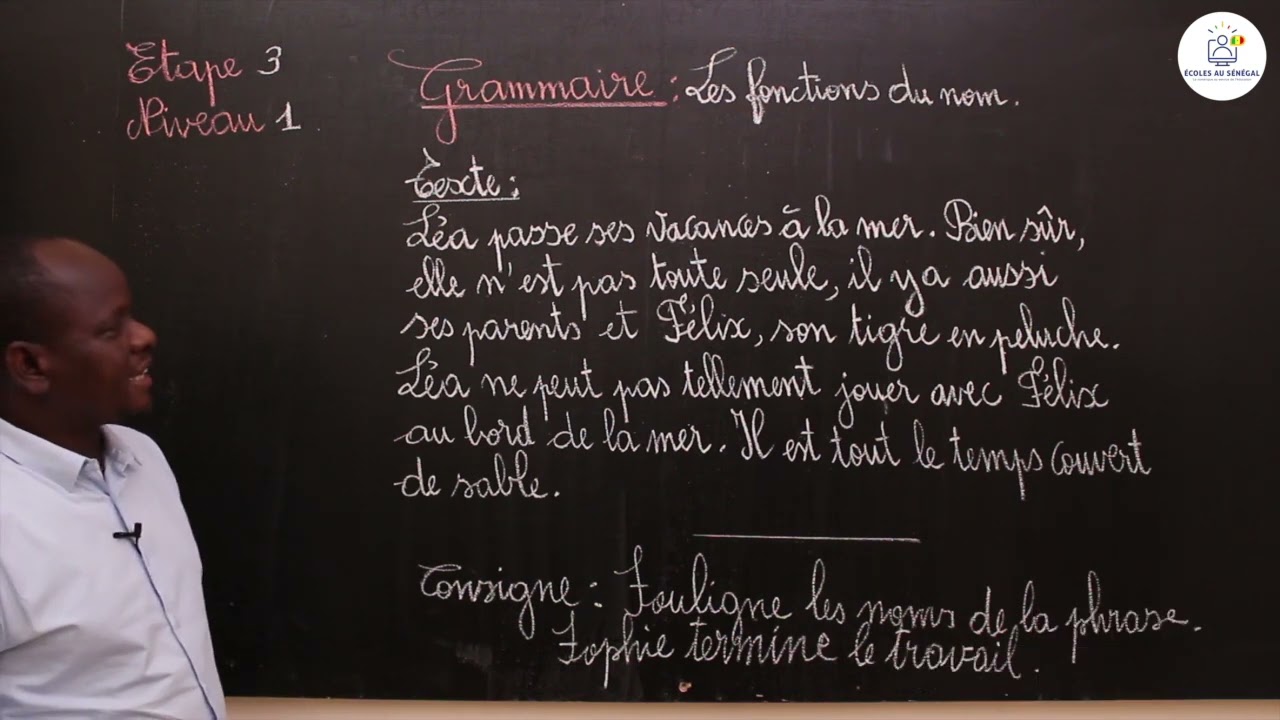 Etape 3
Niveau 1
Grammaire : Les fonctions du nom.
Texte :
Léa passe ses vacances à la mer. Bien sûr,
elle n'est pas toute seule, il y a aussi
ses parents et Félix, son tigre en peluche.
Léa ne peut pas tellement jouer avec Félix
au bord de la mer. Il est tout le temps couvert
de sable.
Consigne : Souligne les noms de la phrase.
Sophie termine le travail.
ÉCOLES AU SÉNÉGAL